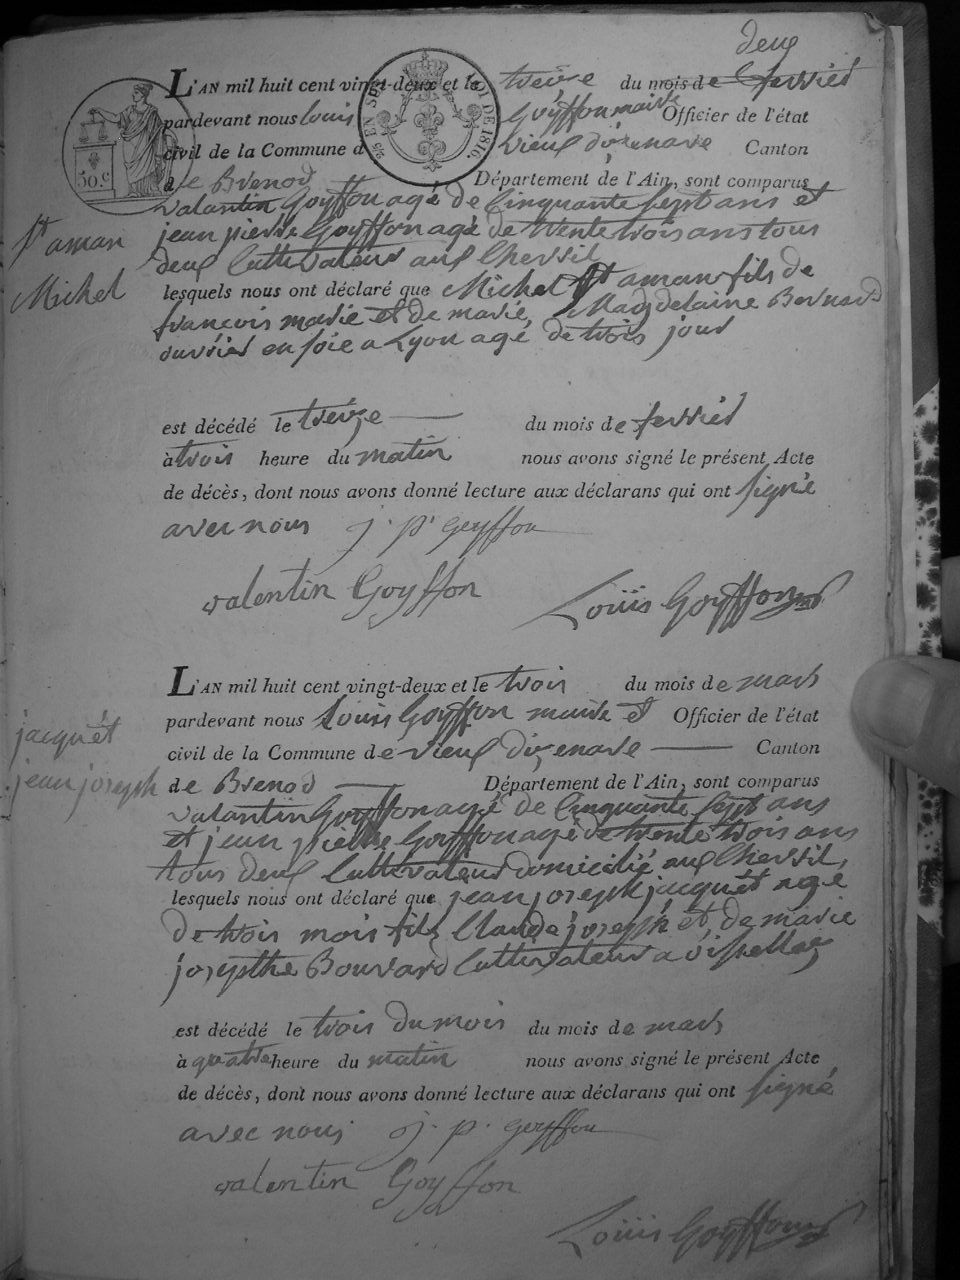 deux
L'AN mil huit cent vingt-deux et le treize du mois de fevrier
pardevant nous louis Goyffon maire Officier de l'état
civil de la Commune d vieux dizenave Canton
de Brenod Département de l'Ain, sont comparus
50.c
EN SUS
LOI DE 1816.
valantin Goyffon agé de Cinquante sept ans et
jean pierre Goyffon agé de trente trois ans tous
deux Cultivateur aux Chevril
St aman
Michel
lesquels nous ont déclaré que Michel St aman fils de
francois marie et de marie Magdelaine Bernard
ouvrier en soie a Lyon agé de trois jour
est décédé le treize du mois de fevrier
à trois heure du matin nous avons signé le présent Acte
de décès, dont nous avons donné lecture aux déclarans qui ont signé
avec nous j. p. goyffon
valentin Goyffon
Louis Goyffon
L'AN mil huit cent vingt-deux et le trois du mois de mars
pardevant nous Louis Goyffon maire et Officier de l'état
civil de la Commune de vieux dizenave Canton
jacquét
jean joseph
de Brenod Département de l'Ain, sont comparus
valantin Goyffon agé de Cinquante sept ans
et jean pierre Goyffon agé de trente trois ans
tous deux Cultivateur domicilié aux Chevril,
lesquels nous ont déclaré que jean joseph jacquét age
de trois mois fils Claude joseph et de marie
josepthe Bouvard Cultivateur a
est décédé le trois du mois du mois de mars
à quatre heure du matin nous avons signé le présent Acte
de décès, dont nous avons donné lecture aux déclarans qui ont signé
avec nous j. p. goyffon
valentin Goyffon
Louis Goyffon